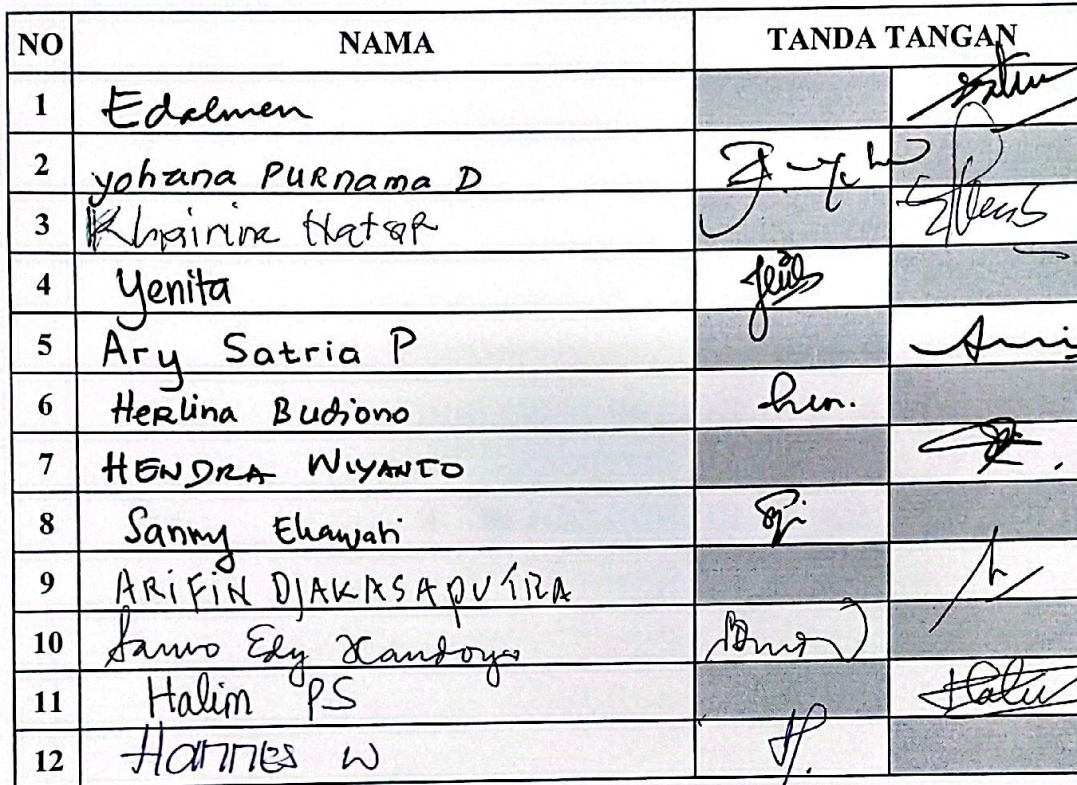 NO NAMA TANDA TANGAN
1 Edalmen
2 yohana PURnama D
3 Khairina
4 Yenita
5 Ary Satria P
6 Herlina Budiono
7 HENDRA WIYANTO
8 Sanny Ekawati
9 ARiFiN DJAKASAPUTRA
10 Sarwo Edy Handoyo
11 Halim PS
12 Hannes W